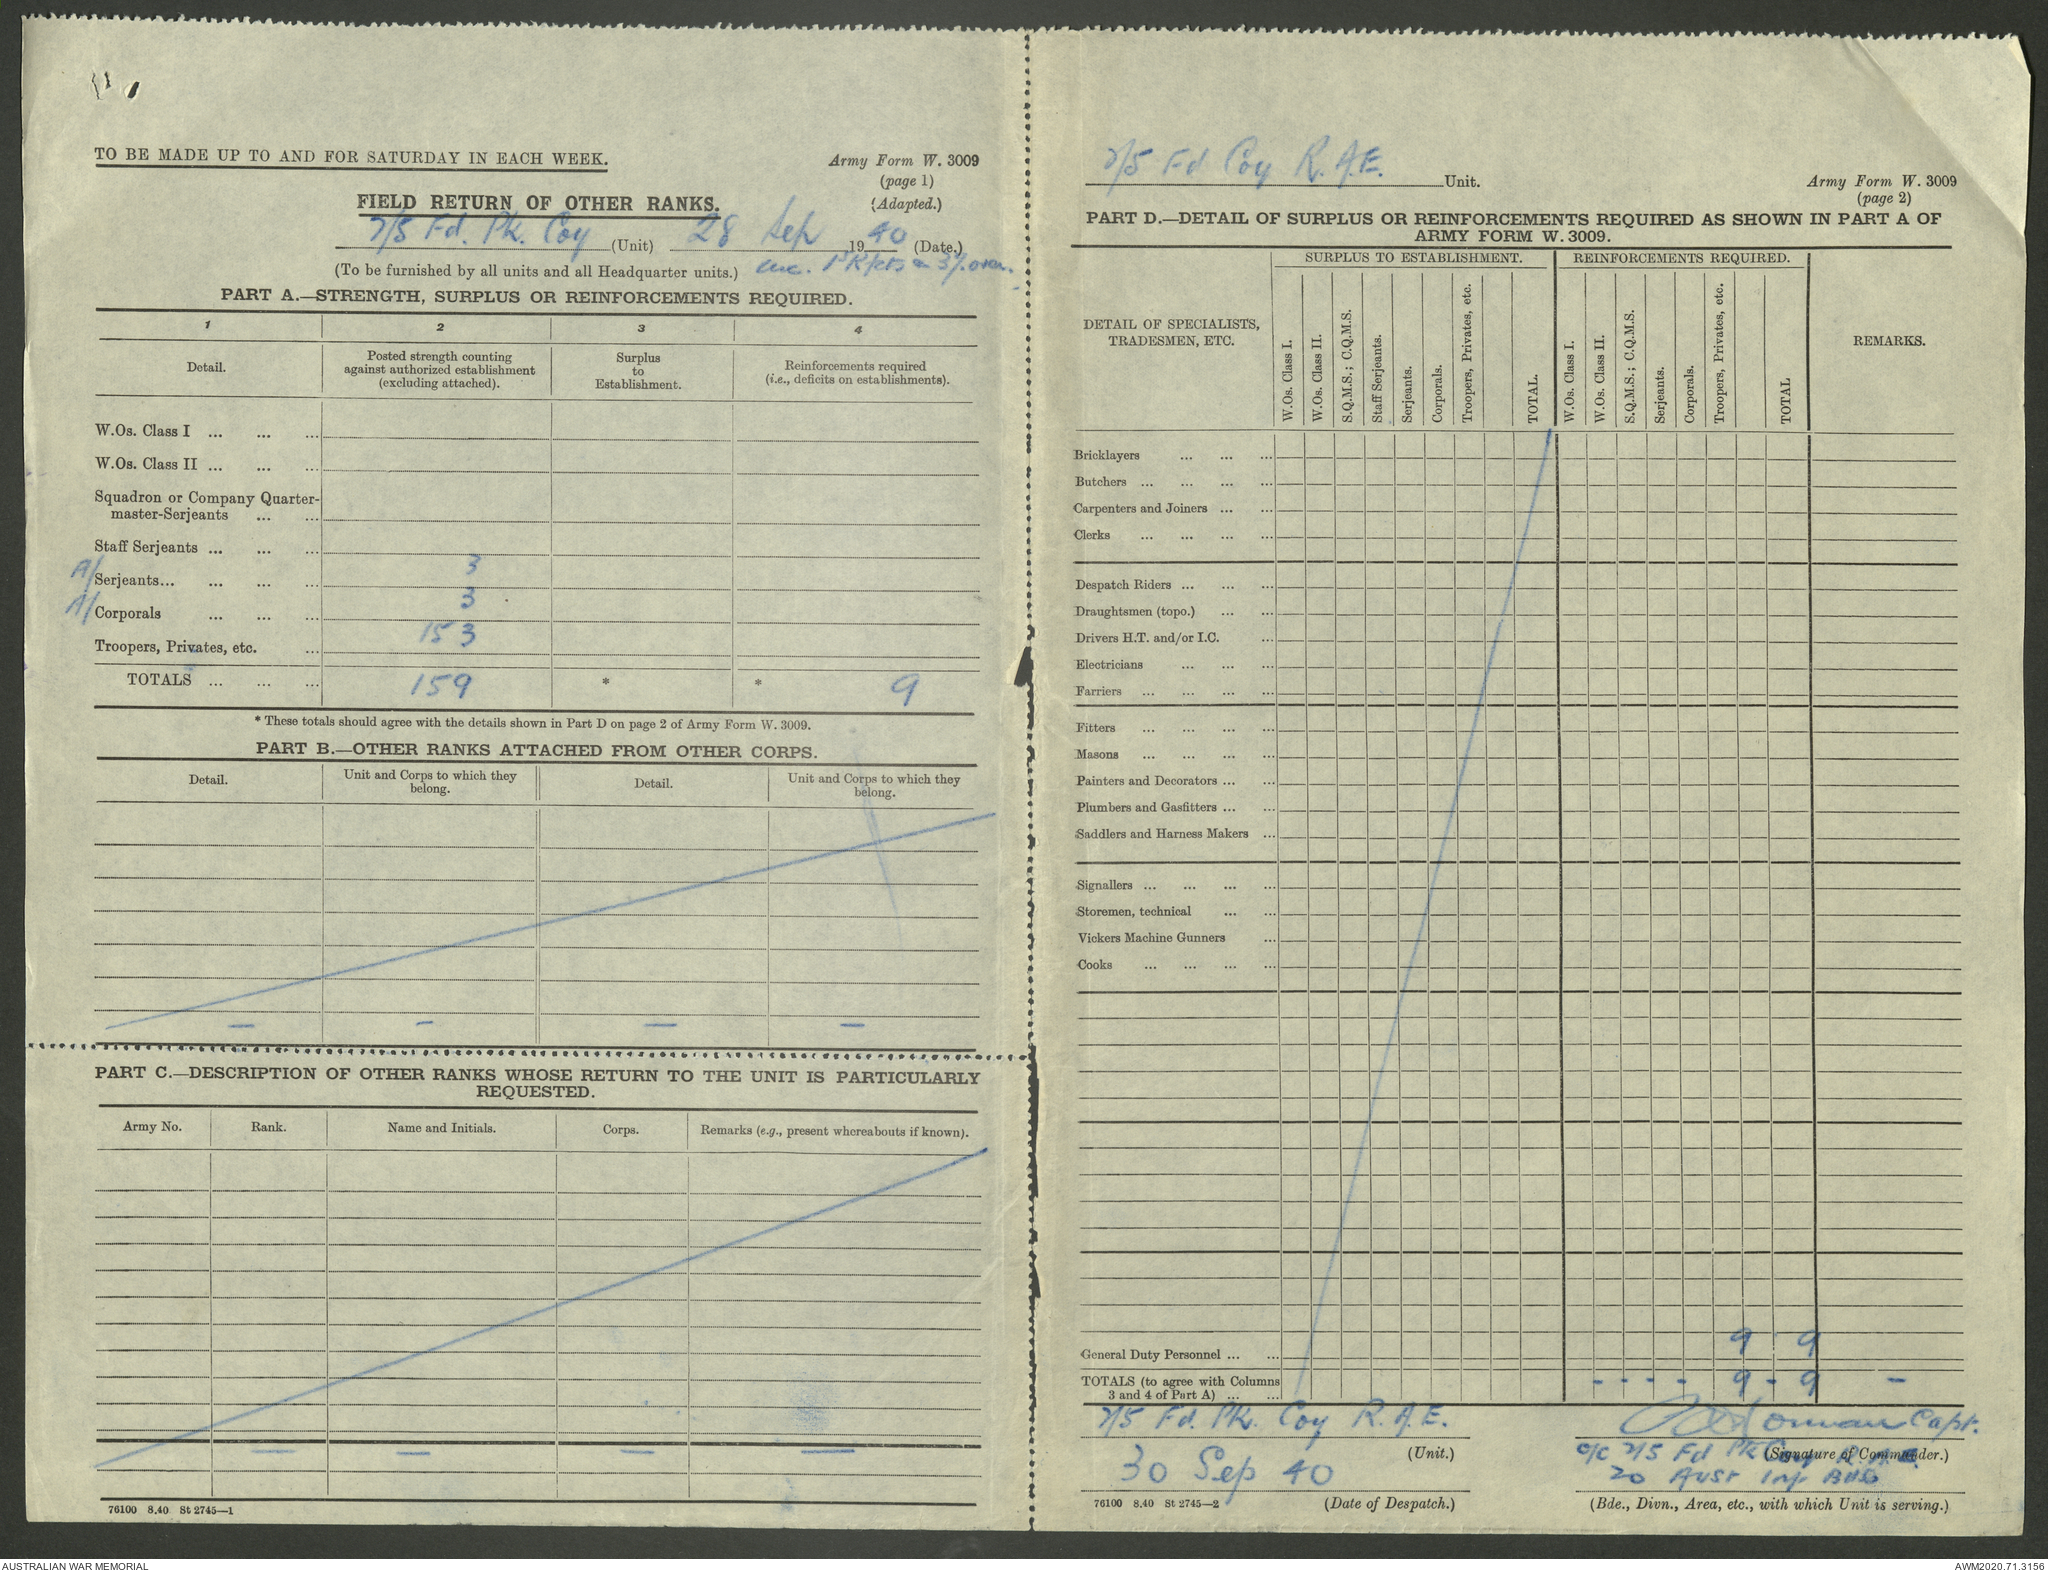 TO BE MADE UP TO AND FOR SATURDAY IN EACH WEEK.
Army Form W. 3009
(page 1)
(Adapted.)
FIELD RETURN OF OTHER RANKS.
2/5 Fd. Pk. Coy (Unit) 28 Sep 1940 (Date.)
(To be furnished by all units and all Headquarter units.) inc. 1st R/fcts
PART A.—STRENGTH, SURPLUS OR REINFORCEMENTS REQUIRED.
1 2 3 4
Detail.
Posted strength counting
against authorized establishment
(excluding attached).
Surplus
to
Establishment.
Reinforcements required
(i.e., deficits on establishments).
W.Os. Class I ... ... ...
W.Os. Class II ... ... ...
Squadron or Company Quarter-
master-Serjeants ... ...
Staff Serjeants ... ... ...
A/ Serjeants... ... ... ... 3
A/ Corporals ... ... ... 3
Troopers, Privates, etc. ... 153
TOTALS ... ... ... 159 * * 9
* These totals should agree with the details shown in Part D on page 2 of Army Form W. 3009.
PART B.—OTHER RANKS ATTACHED FROM OTHER CORPS.
Detail.
Unit and Corps to which they
belong.
Detail.
Unit and Corps to which they
belong.
— — — —
PART C.—DESCRIPTION OF OTHER RANKS WHOSE RETURN TO THE UNIT IS PARTICULARLY
REQUESTED.
Army No. Rank. Name and Initials. Corps. Remarks (e.g., present whereabouts if known).
— — — —
76100 8.40 St 2745—1
2/5 Fd Coy R.A.E. Unit.
Army Form W. 3009
(page 2)
PART D.—DETAIL OF SURPLUS OR REINFORCEMENTS REQUIRED AS SHOWN IN PART A OF
ARMY FORM W. 3009.
DETAIL OF SPECIALISTS,
TRADESMEN, ETC.
SURPLUS TO ESTABLISHMENT.
W.Os. Class I.
W.Os. Class II.
S.Q.M.S.; C.Q.M.S.
Staff Serjeants.
Serjeants.
Corporals.
Troopers, Privates, etc.
TOTAL.
REINFORCEMENTS REQUIRED.
W.Os. Class I.
W.Os. Class II.
S.Q.M.S.; C.Q.M.S.
Serjeants.
Corporals.
Troopers, Privates, etc.
TOTAL
REMARKS.
Bricklayers ... ... ...
Butchers ... ... ... ...
Carpenters and Joiners ... ...
Clerks ... ... ... ...
Despatch Riders ... ... ...
Draughtsmen (topo.) ... ...
Drivers H.T. and/or I.C. ...
Electricians ... ... ...
Farriers ... ... ... ...
Fitters ... ... ... ...
Masons ... ... ... ...
Painters and Decorators ... ...
Plumbers and Gasfitters ... ...
Saddlers and Harness Makers ...
Signallers ... ... ... ...
Storemen, technical ... ...
Vickers Machine Gunners ...
Cooks ... ... ... ...
General Duty Personnel ... ... 9 9
TOTALS (to agree with Columns
3 and 4 of Part A) ... ... - - - - 9 - 9 -
2/5 Fd. Pk. Coy R.A.E.
(Unit.)
30 Sep 40
(Date of Despatch.)
76100 8.40 St 2745—2
Capt.
(Signature of Commander.)
O/C 2/5 Fd Pk Coy R.A.E.
20 Aust Inf Bde
(Bde., Divn., Area, etc., with which Unit is serving.)
AUSTRALIAN WAR MEMORIAL
AWM2020.71.3156